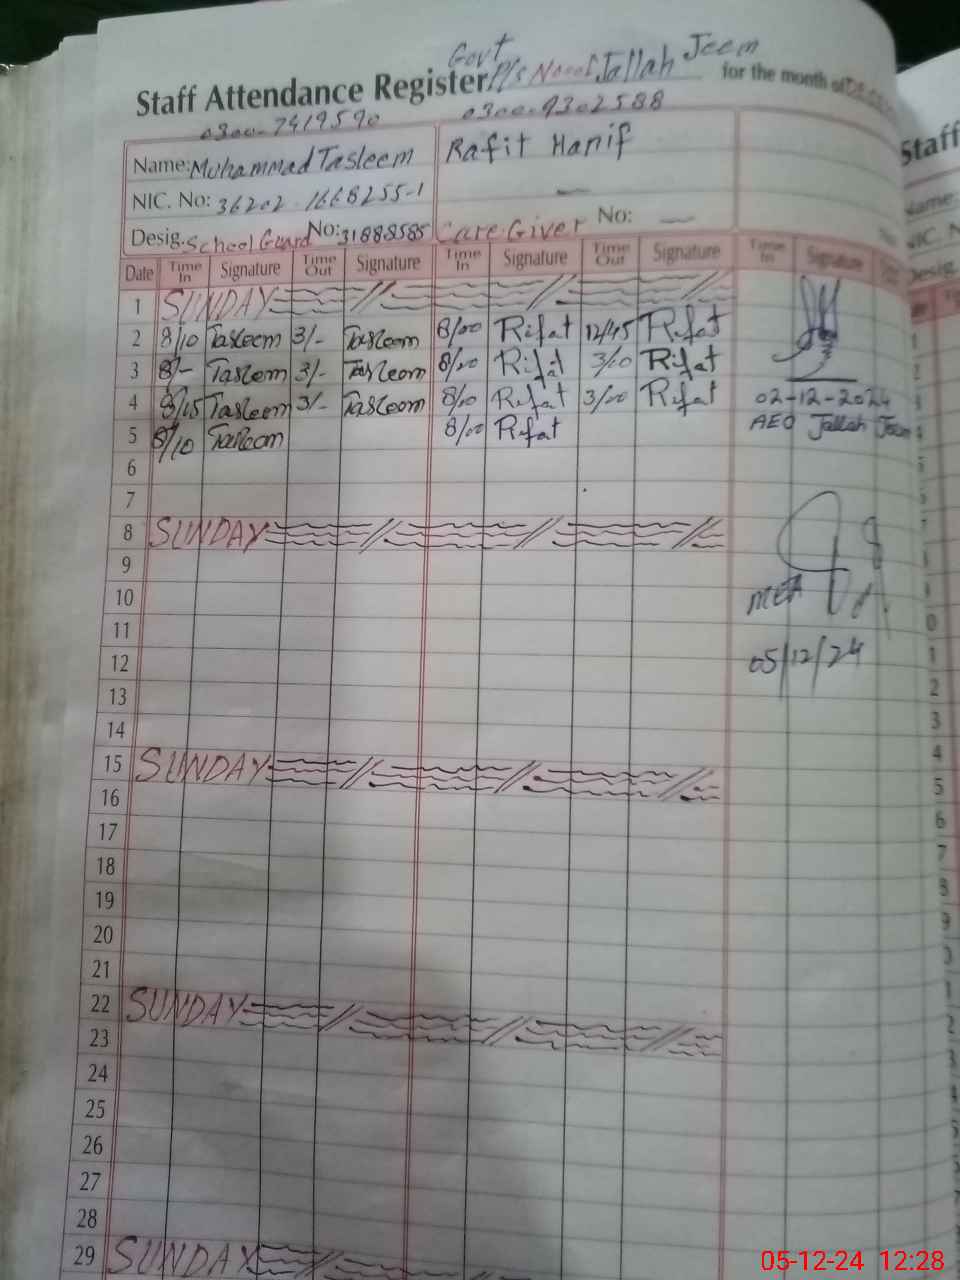 Govt
Staff Attendance Register P/s Jallah Jeem for the month of
0300-7419590 0300-9302588
Name: Muhammad Tasleem Rafit Hanif
NIC. No: 36202-1668255-1 —
Desig. School Guard No: 31888585 Care Giver No: —
Date Time In Signature Time Out Signature Time In Signature Time Out Signature Time In Signature
1 SUNDAY
2 8/10 Tasleem 3/- Tasleem 8/00 Rifat 12/45 Rifat
3 8/- Tasleem 3/- Tasleem 8/00 Rifat 3/00 Rifat
4 8/15 Tasleem 3/- Tasleem 8/00 Rifat 3/00 Rifat 02-12-2024
5 8/10 Tasleem 8/00 Rifat AEO Jallah Jeem
6
7
8 SUNDAY
9
10 MEA
11
12 05/12/24
13
14
15 SUNDAY
16
17
18
19
20
21
22 SUNDAY
23
24
25
26
27
28
29 SUNDAY
Staff
Name:
NIC. N
Desig.
05-12-24 12:28